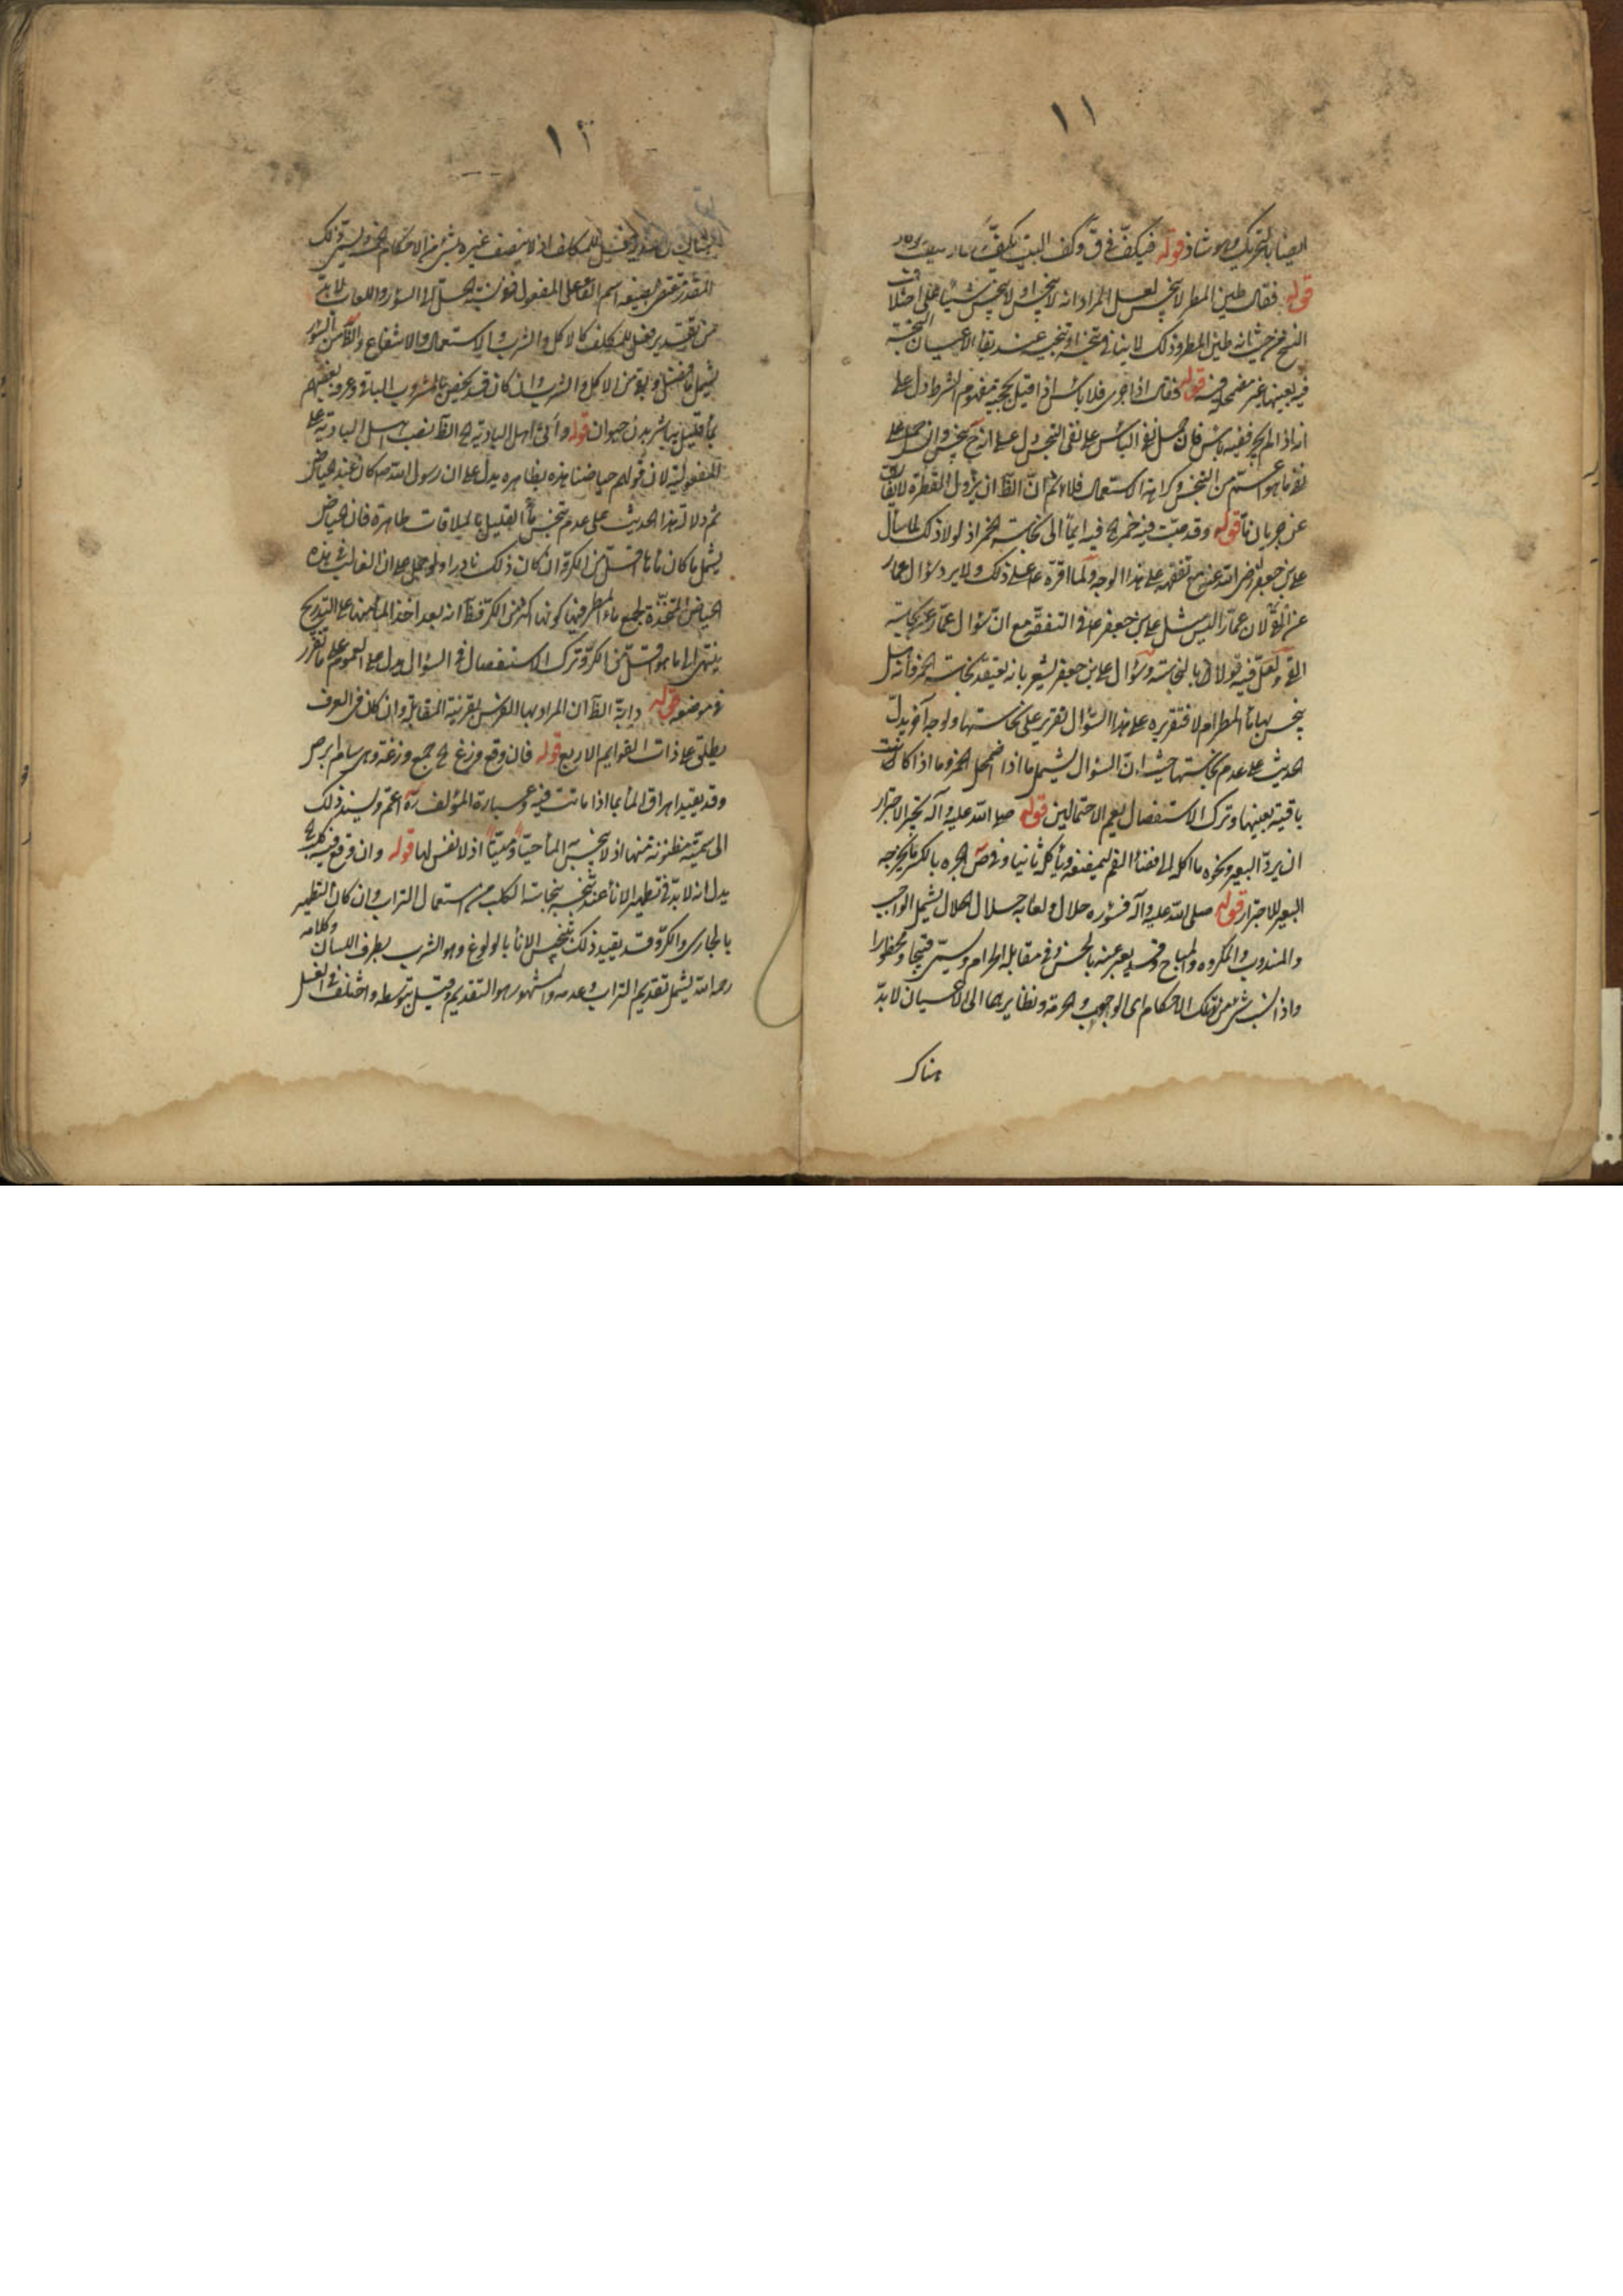 ١١
ايضا بالتحريك وهو شاذ قوله فيكف في ق وكف البيت يكف
قوله فقال طين المطر لا ينجس لعل المراد انه لا ينجس او لا ينجس شيئا على اختلاف
النسخ من حيث انه طين المطر وذلك لا ينافي تنجسه او تنجيسه عند بقاء الاعيان النجسة
فيه بعينها غير مضمحلة فيه قوله فقال اذا جرى فلا باس اذا قيل بحجية مفهوم الشرط دل على
انه اذا لم يجر ففيه باس فان حمل نفي الباس على نفي التنجس دل على انه ح ينجس وان حمل على
نفي ما هو اعم من التنجس وكراهة الاستعمال فلا ثم ان الظ ان نزول القطرة لا يقال
عن جريان ماء قوله وقد صبت فيه خمر فيه ايماء الى نجاسة الخمر اذ لولا ذلك لما سأل
علي بن جعفر رضي الله عنه مع تفقهه على هذا الوجه ولما اقره ع على ذلك ولا يرد سؤال عمار
لان عمار اليس مثل علي بن جعفر في التفقه مع ان سؤال عمار عن نجاسة
ولعل فيه قولا بالنجاسة وسؤال علي بن جعفر يشعر بانه يعتقد نجاسة الخمر فانه سأل
ينجس بها ماء المطر ام لا فتقريره على هذا السؤال تقرير على نجاستها ولوجه آخر يدل
الحديث على عدم نجاستها حيث ان السؤال يشمل ما اذا اضمحل الخمر وما اذا كانت
باقية بعينها وترك الاستفصال يعم الاحتمالين قوله صلى الله عليه وآله يجتر الاجترار
ان يرد البعير ونحوه ما اكله الى فضاء الفم ليمضغه ويأكله ثانيا وفي ص الجره بالكسر ما يخرجه
البعير للاجترار قوله صلى الله عليه وآله فسؤره حلال ولعابه حلال الحلال يشمل الواجب
والمندوب والمكروه والمباح وقد يعبر عنه بالحسن وفي مقابله الحرام ويسمى قبيحا ومحظورا
واذا نسب شئ من تلك الاحكام اى الوجوب والحرمة ونظايرهما الى الاعيان لابد
هناك
١٢
من تقدير فعل للمكلف اذ لا يتصف غيره بشئ من الاحكام
المقدر مقتضى لصيغة اسم الفاعل المفعول فوق نسبة الحل الى السؤر واللعاب لابد
من تقدير فعل للمكلف كالاكل والشرب والاستعمال والانتفاع والظ من السؤر
يشمل ما فضل من الاكل والشرب وان كان قد يختص بالمشروب الباقي وعرفه بعضهم
بماء قليل يباشر بدن حيوان قوله وأتى اهل البادية الظ نصب اهل البادية على
المفعولية لان قولهم حياضنا هذه بظاهره يدل على ان رسول الله ص كان عند الحياض
ثم دلالة هذا الحديث على عدم تنجس ماء القليل بالملاقات ظاهرة فان الحياض
يشمل ما كان ماءها اقل من الكر وان كان ذلك نادرا ولو حمل على ان الغالب في هذه
الحياض المتخذة لجمع ماء المطر فيها كونها اكثر من الكر فظ انه بعد اخذ الماء منها على التدريج
ينتهي الى ما هو اقل من الكر وترك الاستفصال في السؤال يدل على العموم على ما تقرر
في موضعه قوله دابة الظ ان المراد بها الفرس بقرينة المقابلة وان كان في العرف
يطلق على ذات القوايم الاربع قوله فان وقع وزغ ح جمع وزغة وهى سام ابرص
وقد يقيد اهراق الماء بما اذا ماتت فيه وعبارة المؤلف ره اعم ويستند ذلك
الى سمية مظنونة منها اذ لا ينجس الماء حيا وميتا اذ لا نفس لها قوله وان وقع فيه كلب
يدل انه لابد في تطهير الاناء عند تنجسه بنجاسة الكلب من استعمال التراب وان كان التطهير
بالجارى والكر وقد يقيد ذلك بتنجس الاناء بالولوغ وهو الشرب بطرف اللسان وكلامه
رحمه الله يشمل تقديم التراب وعدمه والمشهور هو التقديم وقيل بتوسطه واختلف في الغسل